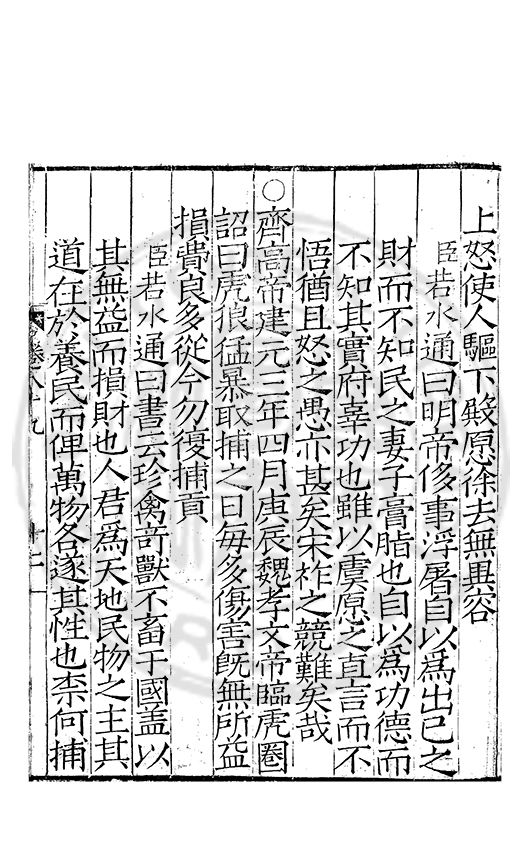 上怒使人驅下殿愿徐去無異容
臣若水通曰明帝侈事浮屠自以爲出己之
財而不知民之妻子膏脂也自以爲功德而
不知其實府辜功也雖以虞愿之直言而不
悟猶且怒之愚亦甚矣宋祚之競難矣哉
○齊高帝建元三年四月庚辰魏孝文帝臨虎圈
詔曰虎狼猛暴取捕之日每多傷害旣無所益
損費良多從今勿復捕貢
臣若水通曰書云珍禽竒獸不畜于國盖以
其無益而損財也人君爲天地民物之主其
道在於養民而俾萬物各遂其性也柰何捕
卷八十九